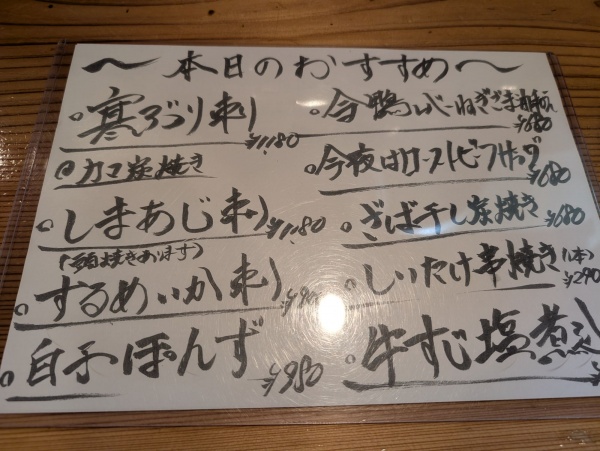 〜本日のおすすめ〜
寒ぶり刺 ¥1,180
カマ炭焼き
しまあじ刺 ¥1,180
(頭焼きあります)
するめいか刺
白子ぽんず ¥980
合鴨レバーねぎごま
¥680
今夜はローストビーフ ¥680
さば干し炭焼き ¥680
しいたけ串焼き(1本) ¥290
牛すじ塩煮